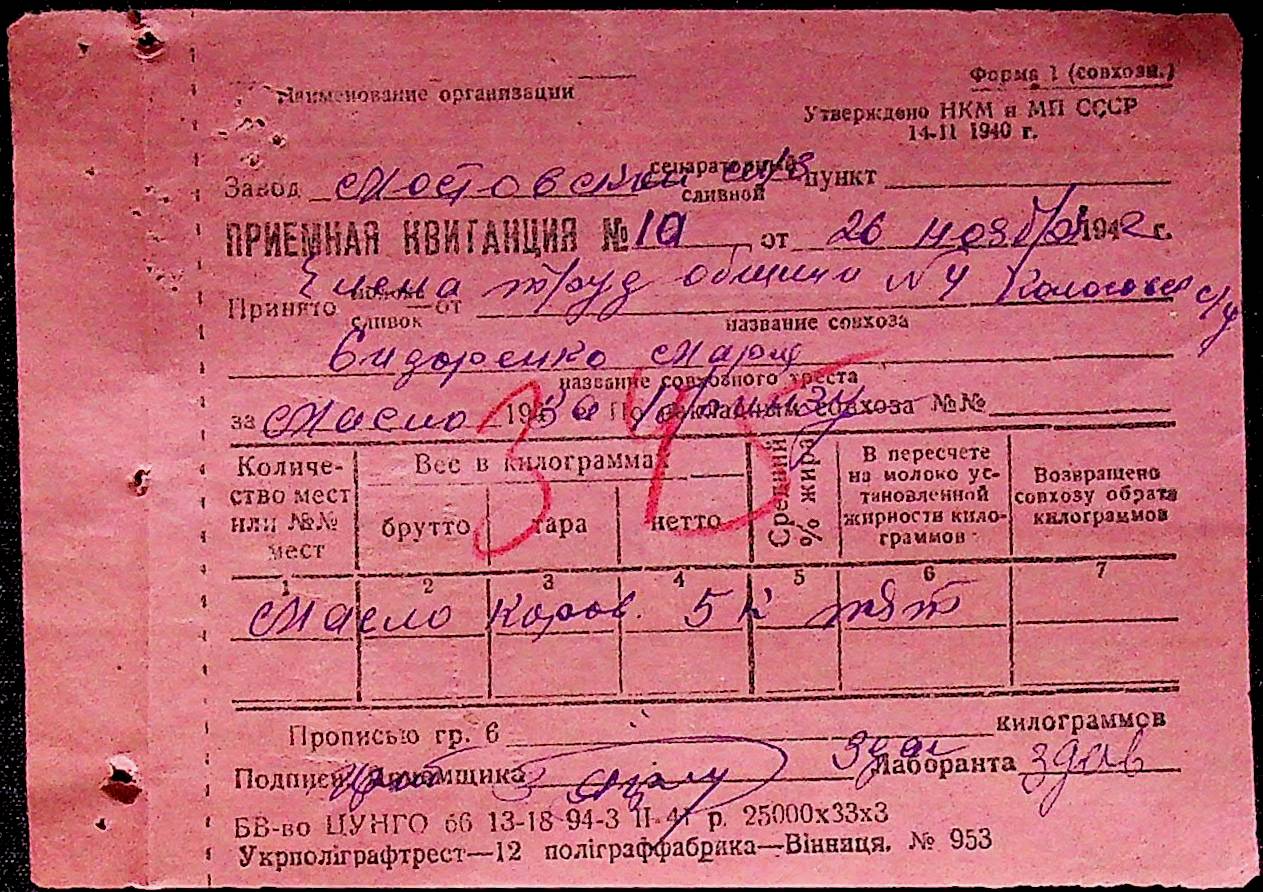 Наименование организации
Форма 1 (совхозн.)
Утверждено НКМ и МП СССР
14-11 1940 г.
Завод Мостовский сепараторный пункт
сливной
ПРИЕМНАЯ КВИТАНЦИЯ № 10 от 26 ноября 1942 г.
Члена труд общини N 4
Принято молока от
сливок
название совхоза
Сидоренко Мария
название совхозного треста
за Масло 194 г. По накладным совхоза №№
345
Количе-
ство мест
или №№
мест
Вес в килограммах
брутто тара нетто
Средний
% жира
В пересчете
на молоко ус-
тановленной
жирности кило-
граммов
Возвращено
совхозу обрата
килограммов
1 2 3 4 5 6 7
Масло коров. 5 к пят
Прописью гр. 6 килограммов
Подписи Приемщика Лаборанта здав
БВ-во ЦУНГО 66 13-18 94-3 II-41 р. 25000х33х3
Укрполіграфтрест—12 поліграффабрика—Вінниця. № 953